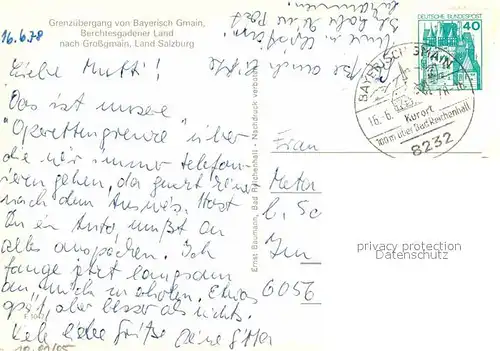 Grenzübergang von Bayerisch Gmain,
Berchtesgadener Land
nach Großgmain, Land Salzburg
16.6.78
Liebe Mutti!
Das ist unsere
"Operettengrenze" über
die wir immer telefon-
ieren gehen, da guckt keiner
nach dem Ausweis. Hast
Du ein Auto, mußt Du
alles auspacken. Ich
fange jetzt langsam
an mich zu erholen. Etwas
spät, aber besser als nichts.
Viele liebe Grüße Deine
Ernst Baumann, Bad Reichenhall - Nachdruck verboten
DEUTSCHE BUNDESPOST
40
BAYERISCH GMAIN
16.6.78
Kurort
100 m über Bad Reichenhall
8232
Frau
Meta
6056
privacy protection
Datenschutz